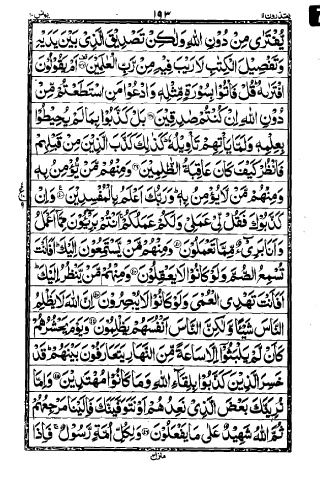 يعتذرون ١١ ١٩٣ يونس ١٠
يُّفْتَرٰى مِنْ دُوْنِ اللّٰهِ وَلٰكِنْ تَصْدِيْقَ الَّذِيْ بَيْنَ يَدَيْهِ
وَتَفْصِيْلَ الْكِتٰبِ لَا رَيْبَ فِيْهِ مِنْ رَّبِّ الْعٰلَمِيْنَ ۝ اَمْ يَقُوْلُوْنَ
افْتَرٰىهُ قُلْ فَاْتُوْا بِسُوْرَةٍ مِّثْلِهٖ وَادْعُوْا مَنِ اسْتَطَعْتُمْ مِّنْ
دُوْنِ اللّٰهِ اِنْ كُنْتُمْ صٰدِقِيْنَ ۝ بَلْ كَذَّبُوْا بِمَا لَمْ يُحِيْطُوْا
بِعِلْمِهٖ وَلَمَّا يَاْتِهِمْ تَاْوِيْلُهٗ كَذٰلِكَ كَذَّبَ الَّذِيْنَ مِنْ قَبْلِهِمْ
فَانْظُرْ كَيْفَ كَانَ عَاقِبَةُ الظّٰلِمِيْنَ ۝ وَمِنْهُمْ مَّنْ يُّؤْمِنُ بِهٖ
وَمِنْهُمْ مَّنْ لَّا يُؤْمِنُ بِهٖ وَرَبُّكَ اَعْلَمُ بِالْمُفْسِدِيْنَ ۝ وَاِنْ
كَذَّبُوْكَ فَقُلْ لِّيْ عَمَلِيْ وَلَكُمْ عَمَلُكُمْ اَنْتُمْ بَرِيْٓـُٔوْنَ مِمَّا اَعْمَلُ
وَاَنَا بَرِيْٓءٌ مِّمَّا تَعْمَلُوْنَ ۝ وَمِنْهُمْ مَّنْ يَّسْتَمِعُوْنَ اِلَيْكَ اَفَاَنْتَ
تُسْمِعُ الصُّمَّ وَلَوْ كَانُوْا لَا يَعْقِلُوْنَ ۝ وَمِنْهُمْ مَّنْ يَّنْظُرُ اِلَيْكَ
اَفَاَنْتَ تَهْدِي الْعُمْيَ وَلَوْ كَانُوْا لَا يُبْصِرُوْنَ ۝ اِنَّ اللّٰهَ لَا يَظْلِمُ
النَّاسَ شَيْـًٔا وَّلٰكِنَّ النَّاسَ اَنْفُسَهُمْ يَظْلِمُوْنَ ۝ وَيَوْمَ يَحْشُرُهُمْ
كَاَنْ لَّمْ يَلْبَثُوْٓا اِلَّا سَاعَةً مِّنَ النَّهَارِ يَتَعَارَفُوْنَ بَيْنَهُمْ قَدْ
خَسِرَ الَّذِيْنَ كَذَّبُوْا بِلِقَآءِ اللّٰهِ وَمَا كَانُوْا مُهْتَدِيْنَ ۝ وَاِمَّا
نُرِيَنَّكَ بَعْضَ الَّذِيْ نَعِدُهُمْ اَوْ نَتَوَفَّيَنَّكَ فَاِلَيْنَا مَرْجِعُهُمْ
ثُمَّ اللّٰهُ شَهِيْدٌ عَلٰى مَا يَفْعَلُوْنَ ۝ وَلِكُلِّ اُمَّةٍ رَّسُوْلٌ فَاِذَا